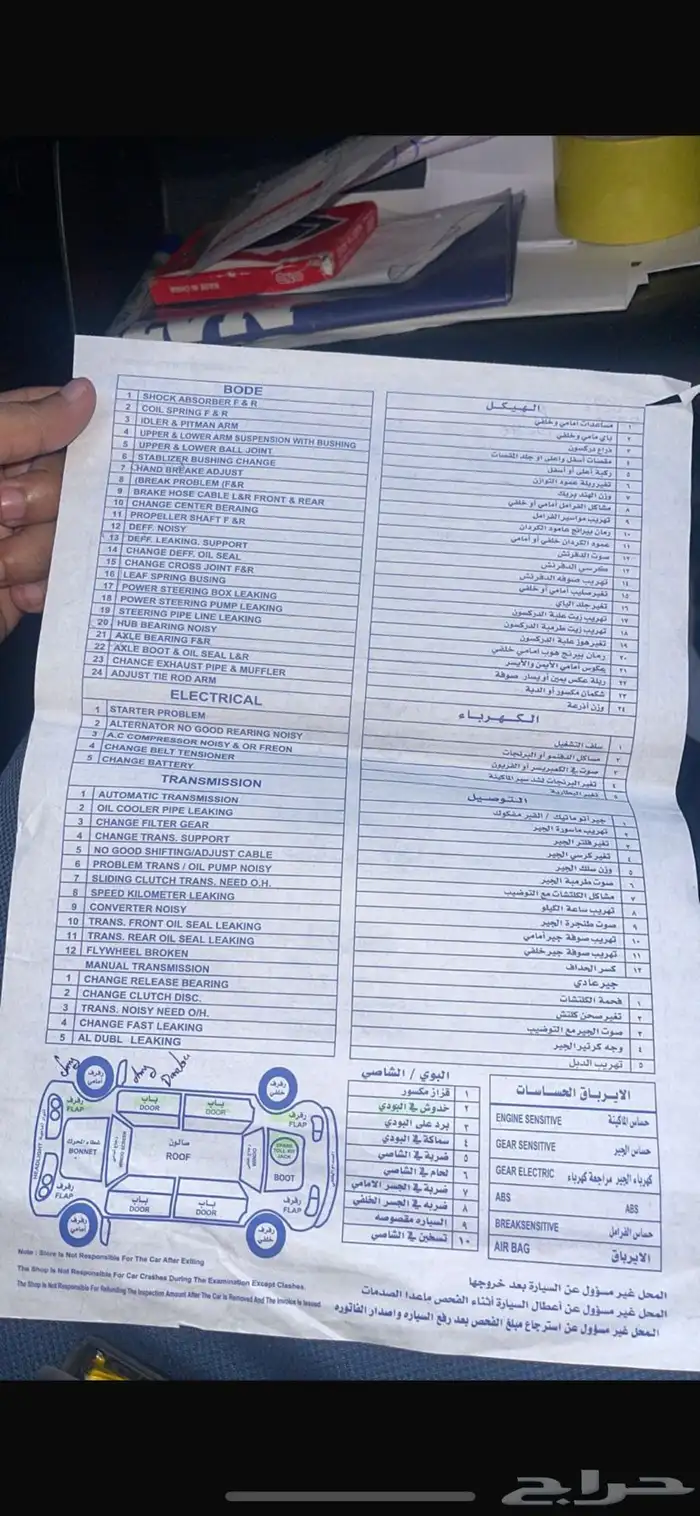 MADE IN CHINA
BODE
1 SHOCK ABSORBER F & R
2 COIL SPRING F & R
3 IDLER & PITMAN ARM
4 UPPER & LOWER ARM SUSPENSION WITH BUSHING
5 UPPER & LOWER BALL JOINT
6 STABLIZER BUSHING CHANGE
7 HAND BREAKE ADJUST
8 (BREAK PROBLEM (F&R
9 BRAKE HOSE CABLE L&R FRONT & REAR
10 CHANGE CENTER BERAING
11 PROPELLER SHAFT F &R
12 DEFF. NOISY
13 DEFF. LEAKING. SUPPORT
14 CHANGE DEFF. OIL SEAL
15 CHANGE CROSS JOINT F&R
16 LEAF SPRING BUSING
17 POWER STEERING BOX LEAKING
18 POWER STEERING PUMP LEAKING
19 STEERING PIPE LINE LEAKING
20 HUB BEARING NOISY
21 AXLE BEARING F&R
22 AXLE BOOT & OIL SEAL L&R
23 CHANCE EXHAUST PIPE & MUFFLER
24 ADJUST TIE ROD ARM
ELECTRICAL
1 STARTER PROBLEM
2 ALTERNATOR NO GOOD REARING NOISY
3 A.C COMPRESSOR NOISY & OR FREON
4 CHANGE BELT TENSIONER
5 CHANGE BATTERY
TRANSMISSION
1 AUTOMATIC TRANSMISSION
2 OIL COOLER PIPE LEAKING
3 CHANGE FILTER GEAR
4 CHANGE TRANS. SUPPORT
5 NO GOOD SHIFTING/ADJUST CABLE
6 PROBLEM TRANS / OIL PUMP NOISY
7 SLIDING CLUTCH TRANS. NEED O.H.
8 SPEED KILOMETER LEAKING
9 CONVERTER NOISY
10 TRANS. FRONT OIL SEAL LEAKING
11 TRANS. REAR OIL SEAL LEAKING
12 FLYWHEEL BROKEN
MANUAL TRANSMISSION
1 CHANGE RELEASE BEARING
2 CHANGE CLUTCH DISC.
3 TRANS. NOISY NEED O/H.
4 CHANGE FAST LEAKING
5 AL DUBL LEAKING
الهيكل
١ مساعدات أمامي وخلفي
٢ ياي مامي وخلفي
٣ ذراع دركسون
٤ مقصات أسفل واعلى او جلد المقصات
٥ ركبة أعلى أو أسفل
٦ تغير ريلة عمود التوازن
٧ وزن الهند بريك
٨ مشاكل الفرامل أمامي أو خلفي
٩ تهريب مواسير الفرامل
١٠ رمان بيرانج عامود الكردان
١١ عمود الكردان خلفي أو أمامي
١٢ صوت الدفرنش
١٣ كرسي الدفرنش
١٤ تهريب صوفه الدفرنش
١٥ تغير صليب أمامي أو خلفي
١٦ تغير جلد الياي
١٧ تهريب زيت علبة الدركسون
١٨ تهريب زيت طرمبة الدركسون
١٩ تغير هوز علبة الدركسون
٢٠ رمان بيرنج هوب امامي خلفي
٢١ عكوس أمامي الأيمن والأيسر
٢٢ ريلة عكس يمين أو يسار صوفة
٢٣ شكمان مكسور أو الدبة
٢٤ وزن أذرعة
الكهرباء
١ سلف التشغيل
٢ مساكل الدفنمو أو البرنجات
٣ صوت في الكمبريسر أو الفريون
٤ تغير البرنجات فشد سير الماكينة
٥ تغير البطارية
التوصيل
١ جير أتوماتيك / القير مشكوك
٢ تهريب ماسورة الجير
٣ تغير فلتر الجير
٤ تغير كرسي الجير
٥ وزن سلك الجير
٦ صوت طرمبة الجير
٧ مشاكل الكلتشات مع التوضيب
٨ تهريب ساعة الكيلو
٩ صوت طنجرة الجير
١٠ تهريب صوفة جير أمامي
١١ تهريب صوفة جير خلفي
١٢ كسر الحداف
جير عادي
١ فحمة الكلتشات
٢ تغير صحن كلتش
٣ صوت الجير مع التوضيب
٤ وجه كرتير الجير
٥ تهريب الدبل
رفرف أمامي
رفرف خلفي
رفرف FLAP
باب DOOR
باب DOOR
رفرف FLAP
HEADLIGHT
غطاء المحرك BONNET
صالون ROOF
SPARE TOLL KIT JACK
BOOT
رفرف FLAP
باب DOOR
باب DOOR
رفرف FLAP
رفرف أمامي
رفرف خلفي
البوي / الشاصي
١ قزاز مكسور
٢ خدوش في البودي
٣ برد على البودي
٤ سماكة في البودي
٥ ضربة في الشاصي
٦ لحام في الشاصي
٧ ضربة في الجسر الامامي
٨ ضربه في الجسر الخلفي
٩ السياره مقصوصه
١٠ تسخين في الشاصي
الايرباق الحساسات
ENGINE SENSITIVE حساس الماكينة
GEAR SENSITIVE حساس الجير
GEAR ELECTRIC كهرباء الجير مراجعة كهرباء
ABS ABS
BREAKSENSITIVE حساس الفرامل
AIR BAG الايرباق
Note : Store Is Not Responsible For The Car After Exiting
The Shop Is Not Responsible For Car Crashes During The Examination Except Clashes.
The Shop Is Not Responsible For Refunding The Inspection Amount After The Car Is Removed And The Invoice Is Issued
المحل غير مسؤول عن السيارة بعد خروجها
المحل غير مسؤول عن أعطال السيارة أثناء الفحص ماعدا الصدمات
المحل غير مسؤول عن استرجاع مبلغ الفحص بعد رفع السياره واصدار الفاتوره
حراج